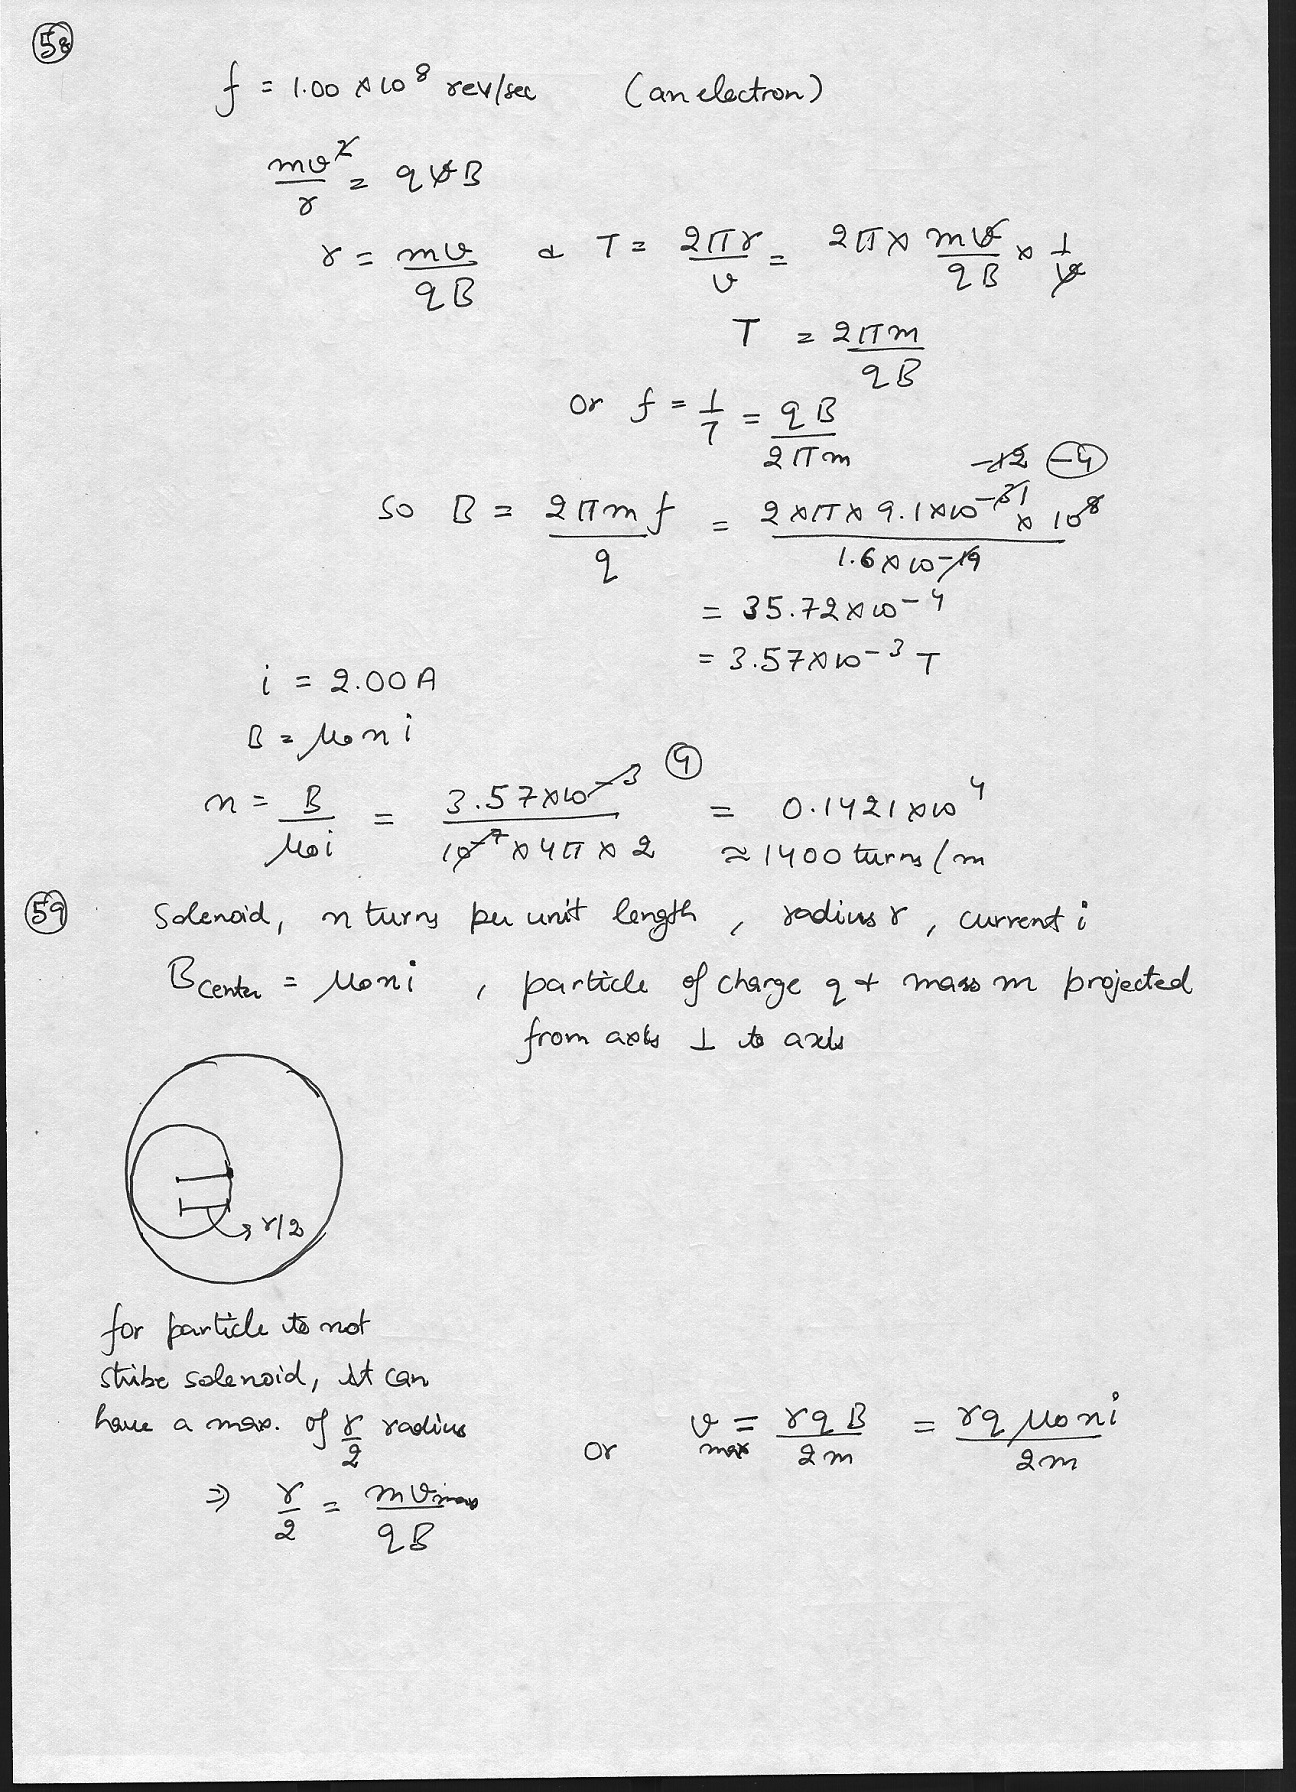 58
f = 1.00 × 10^8 rev/sec (an electron)
mv^2/r = qvB
r = mv/qB & T = 2πr/v = 2π × mv/qB × 1/v
T = 2πm/qB
or f = 1/T = qB/2πm
-12 -4
so B = 2πmf/q = 2×π×9.1×10^-31 × 10^8 / 1.6×10^-19
= 35.72×10^-4
= 3.57×10^-3 T
i = 2.00A
B = μ₀ni
n = B/μ₀i = 3.57×10^-3 / 10^-7×4π×2 (4) = 0.1421×10^4
≈ 1400 turns/m
59 Solenoid, n turns per unit length, radius r, current i
Bcenter = μ₀ni, particle of charge q & mass m projected
from axis ⊥ to axis
r/2
for particle to not
strike solenoid, it can
have a max. of r/2 radius
⇒ r/2 = mvmax/qB
or vmax = rqB/2m = rqμ₀ni/2m